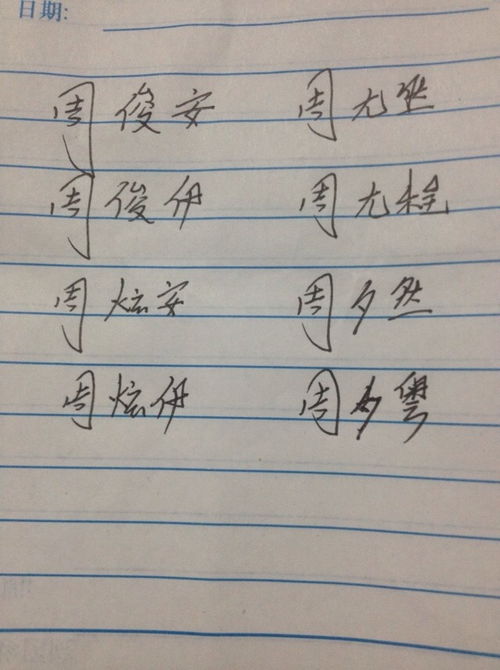 日期:
周俊安 周尤然
周俊伊 周尤程
周炫安 周夕然
周炫伊 周夕雲